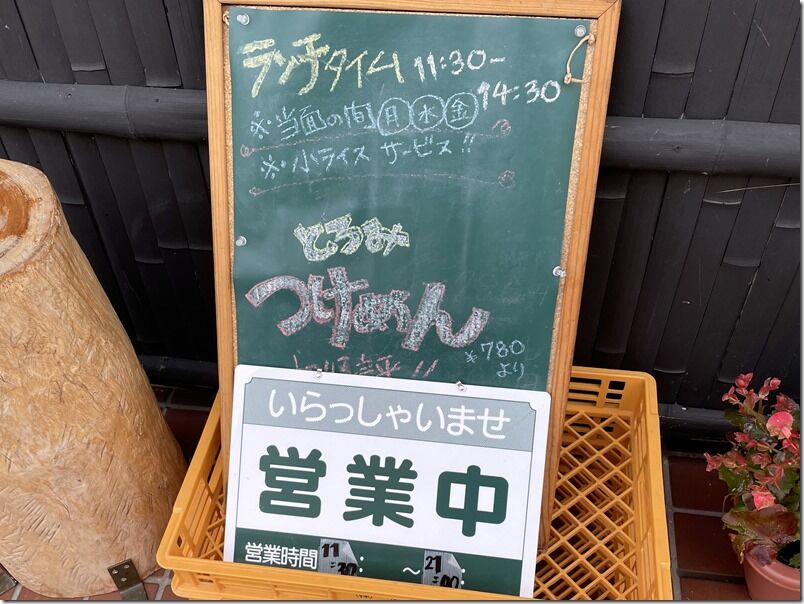 ランチタイム 11:30-
14:30
※・当面の間 月 水 金
※・小ライス サービス!!
とろみ
つけめん
¥780
より
いらっしゃいませ
営業中
営業時間 11:30 ～ 21:00